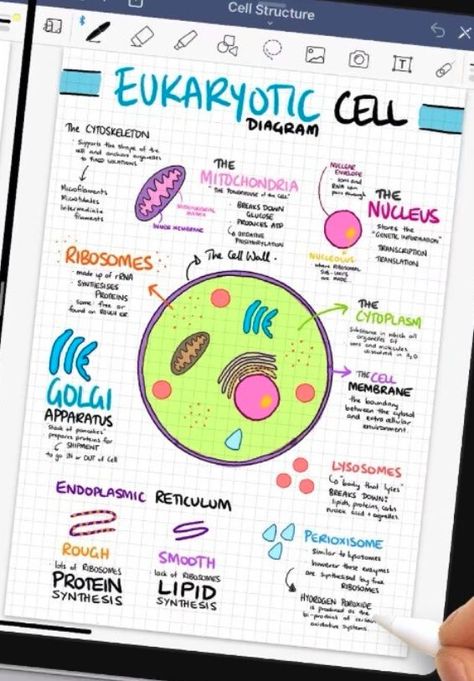 Cell Structure
EUKARYOTIC CELL
DIAGRAM
The CYTOSKELETON
Supports the shape of the
cell and anchors organelles
to FIXED LOCATIONS.
Microfilaments
Microtubules
Intermediate
filaments
THE
MITOCHONDRIA
"The POWERHOUSE of the CELL"
BREAKS DOWN
GLUCOSE
PRODUCES ATP
OXIDATIVE
INNER MEMBRANE
NUCLEAR
ENVELOPE
ions and
RNA can
pass through
NUCLEOLUS
where RIBOSOMAL
SUB-UNITS
are MADE
THE
NUCLEUS
stores the
"GENETIC INFORMATION"
TRANSCRIPTION
TRANSLATION
RIBOSOMES
made up of rRNA
SYNTHESISES
PROTEINS
some free or
found on ROUGH ER
The Cell Wall
THE
CYTOPLASM
Substance in which all
organelles of
ions and molecules
dissolved in H2O
THE CELL
MEMBRANE
the boundary
between the cytosol
and extracellular
environment.
GOLGI
APPARATUS
Stack of pancakes"
prepares proteins for
SHIPMENT
to go IN or OUT of cell
LYSOSOMES
"body that lyses"
BREAKS DOWN:
lipids, proteins, carbs
nucleic acid + organelles
ENDOPLASMIC RETICULUM
ROUGH
lots of RIBOSOMES
PROTEIN
SYNTHESIS
SMOOTH
lack of RIBOSOMES
LIPID
SYNTHESIS
PERIOXISOME
similar to lysosomes
however those enzymes
are synthesised by free
RIBOSOMES
HYDROGEN PEROXIDE
is produced as the
bi-product of certain
oxidative systems